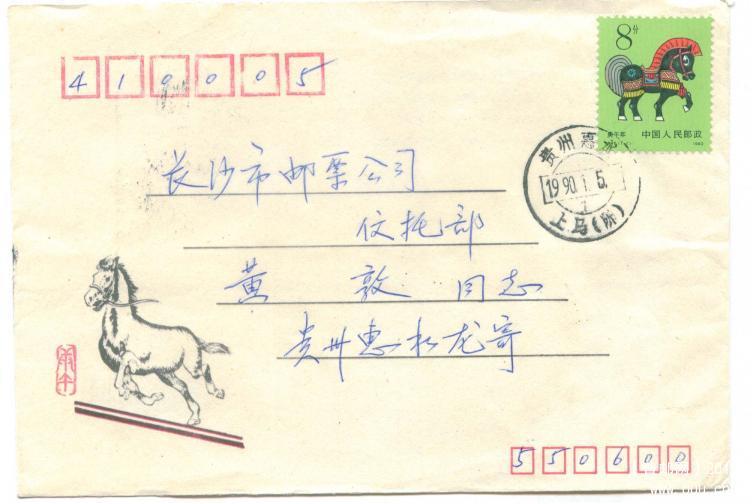 410005
8分
庚午年
中国人民邮政
1990
贵州惠
1990.1.5.
上马(所)
长沙市邮票公司
信托部
黄 敦 同志
贵州惠水龙寄
庚午
550600